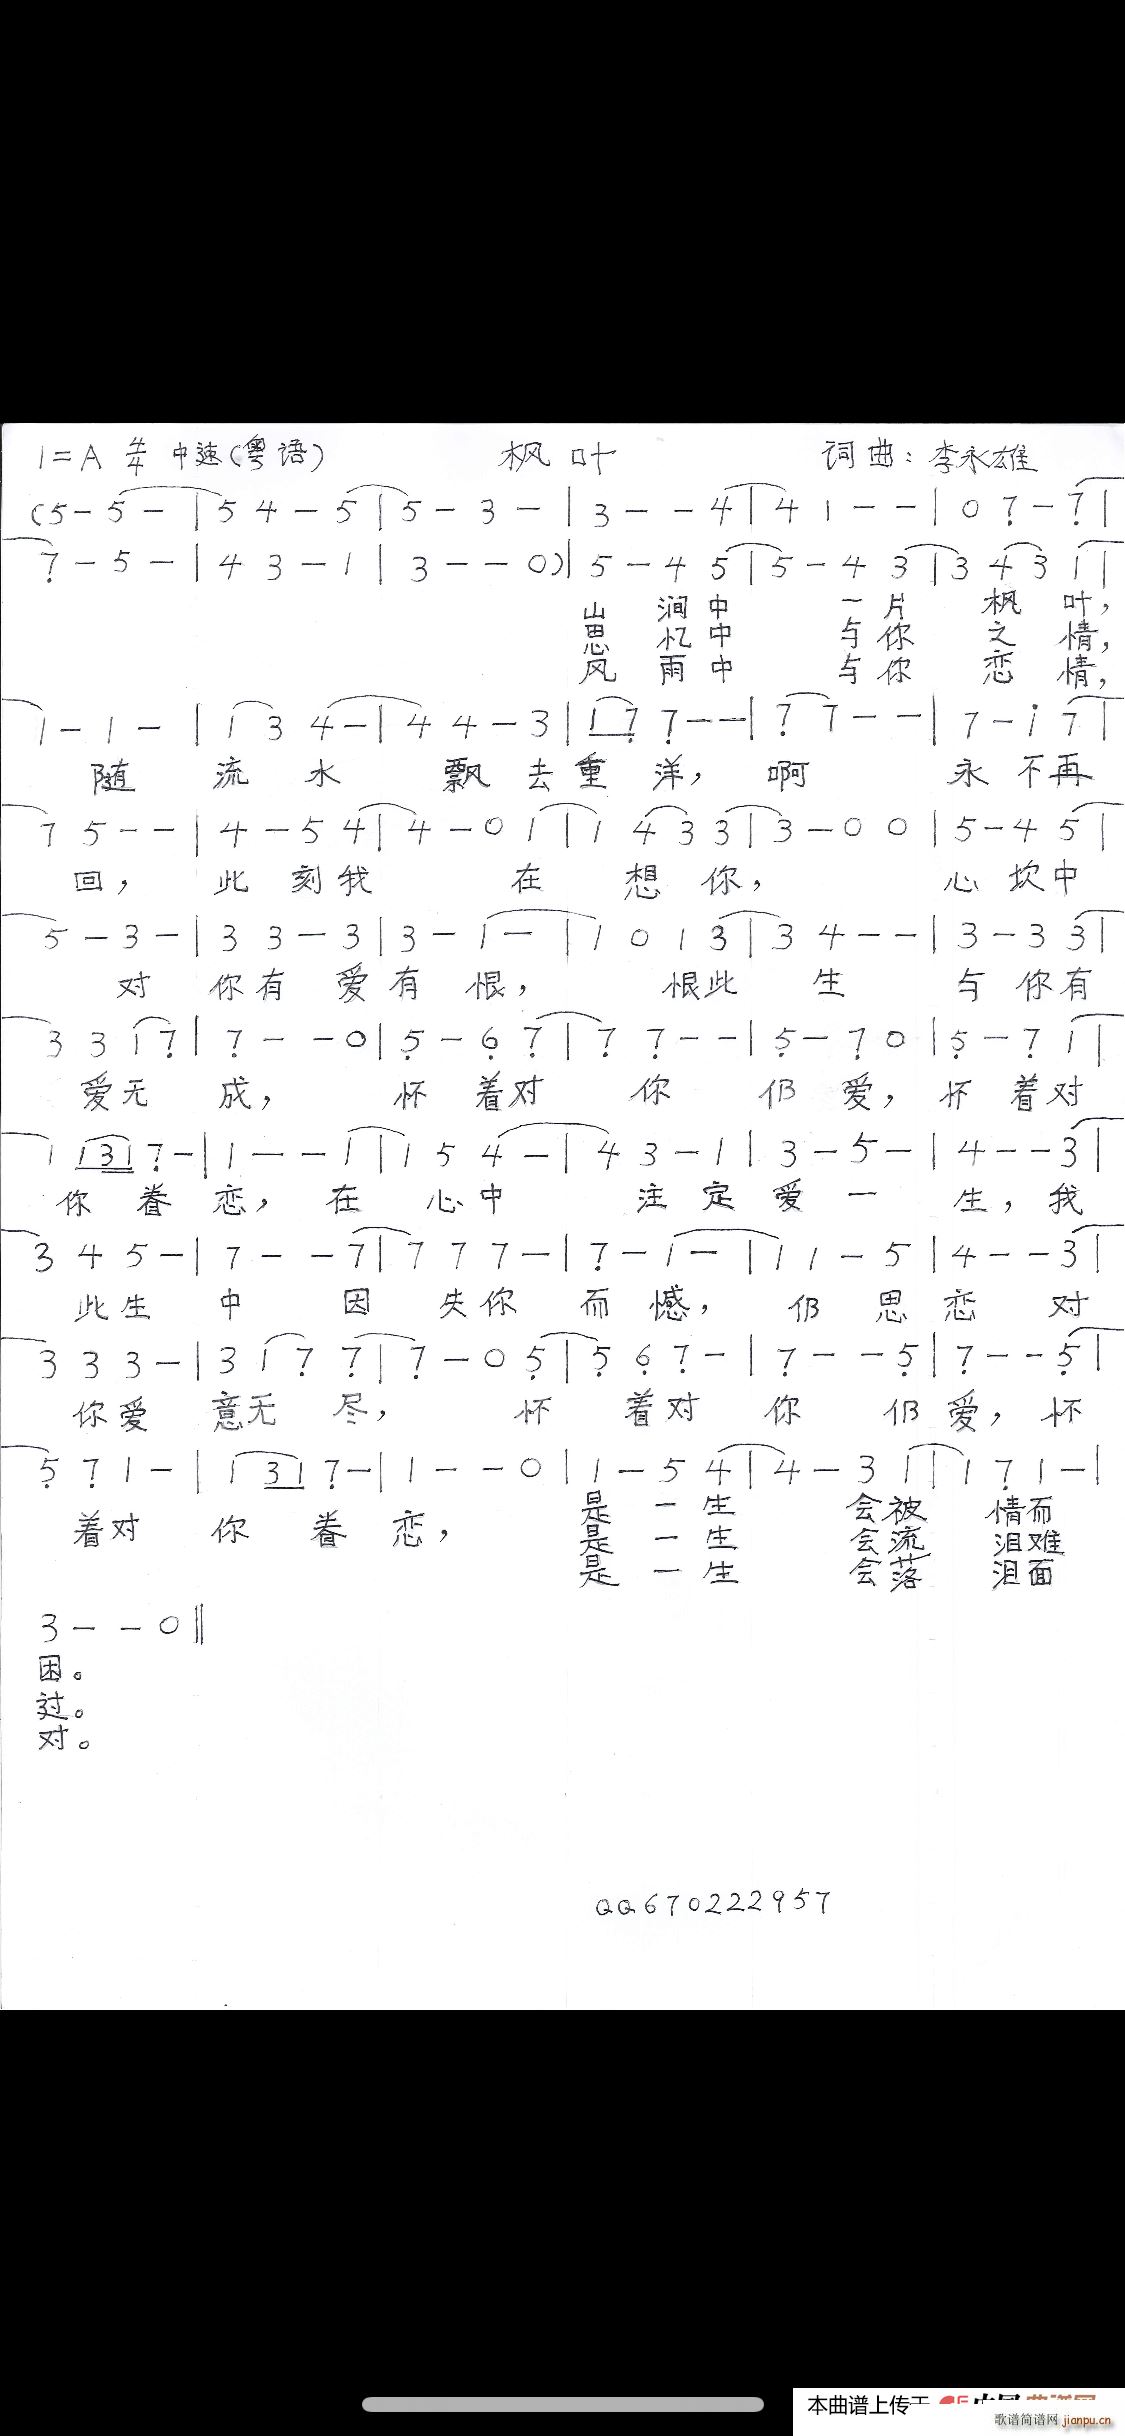 1=A 4/4 中速(粤语) 枫叶 词曲:李永雄
(5-5-|54-5|5-3-|3--4|41--|07-7|
7-5-|43-1|3--0)|5-45|5-43|3431|
山涧中 一片枫叶,
思忆中 与你之情,
风雨中 与你恋情,
1-1-|134-|44-3|177--|77--|7-i7|
随流水 飘去重洋, 啊 永不再
75--|4-54|4-01|1433|3-00|5-45|
回, 此刻我 在想你, 心坎中
5-3-|33-3|3-1-|1013|34--|3-33|
对你有爱有恨, 恨此生 与你有
3317|7--0|5-67|77--|5-70|5-71|
爱无成, 怀着对你 仍爱, 怀着对
11317-|1--1|154-|43-1|3-5-|4--3|
你眷恋, 在心中 注定爱一生, 我
345-|7--7|777-|7-1-|11-5|4--3|
此生中 因失你而憾, 仍思恋对
333-|3177|7-05|567-|7--5|7--5|
你爱意无尽, 怀着对你仍爱, 怀
571-|1317-|1--0|1-54|4-31|171-|
着对你眷恋,
是一生 会被情而
是一生 会流泪难
是一生 会落泪面
3--0‖
困。
过。
对。
QQ670222957
本曲谱上传于
歌谱简谱网 jianpu.cn